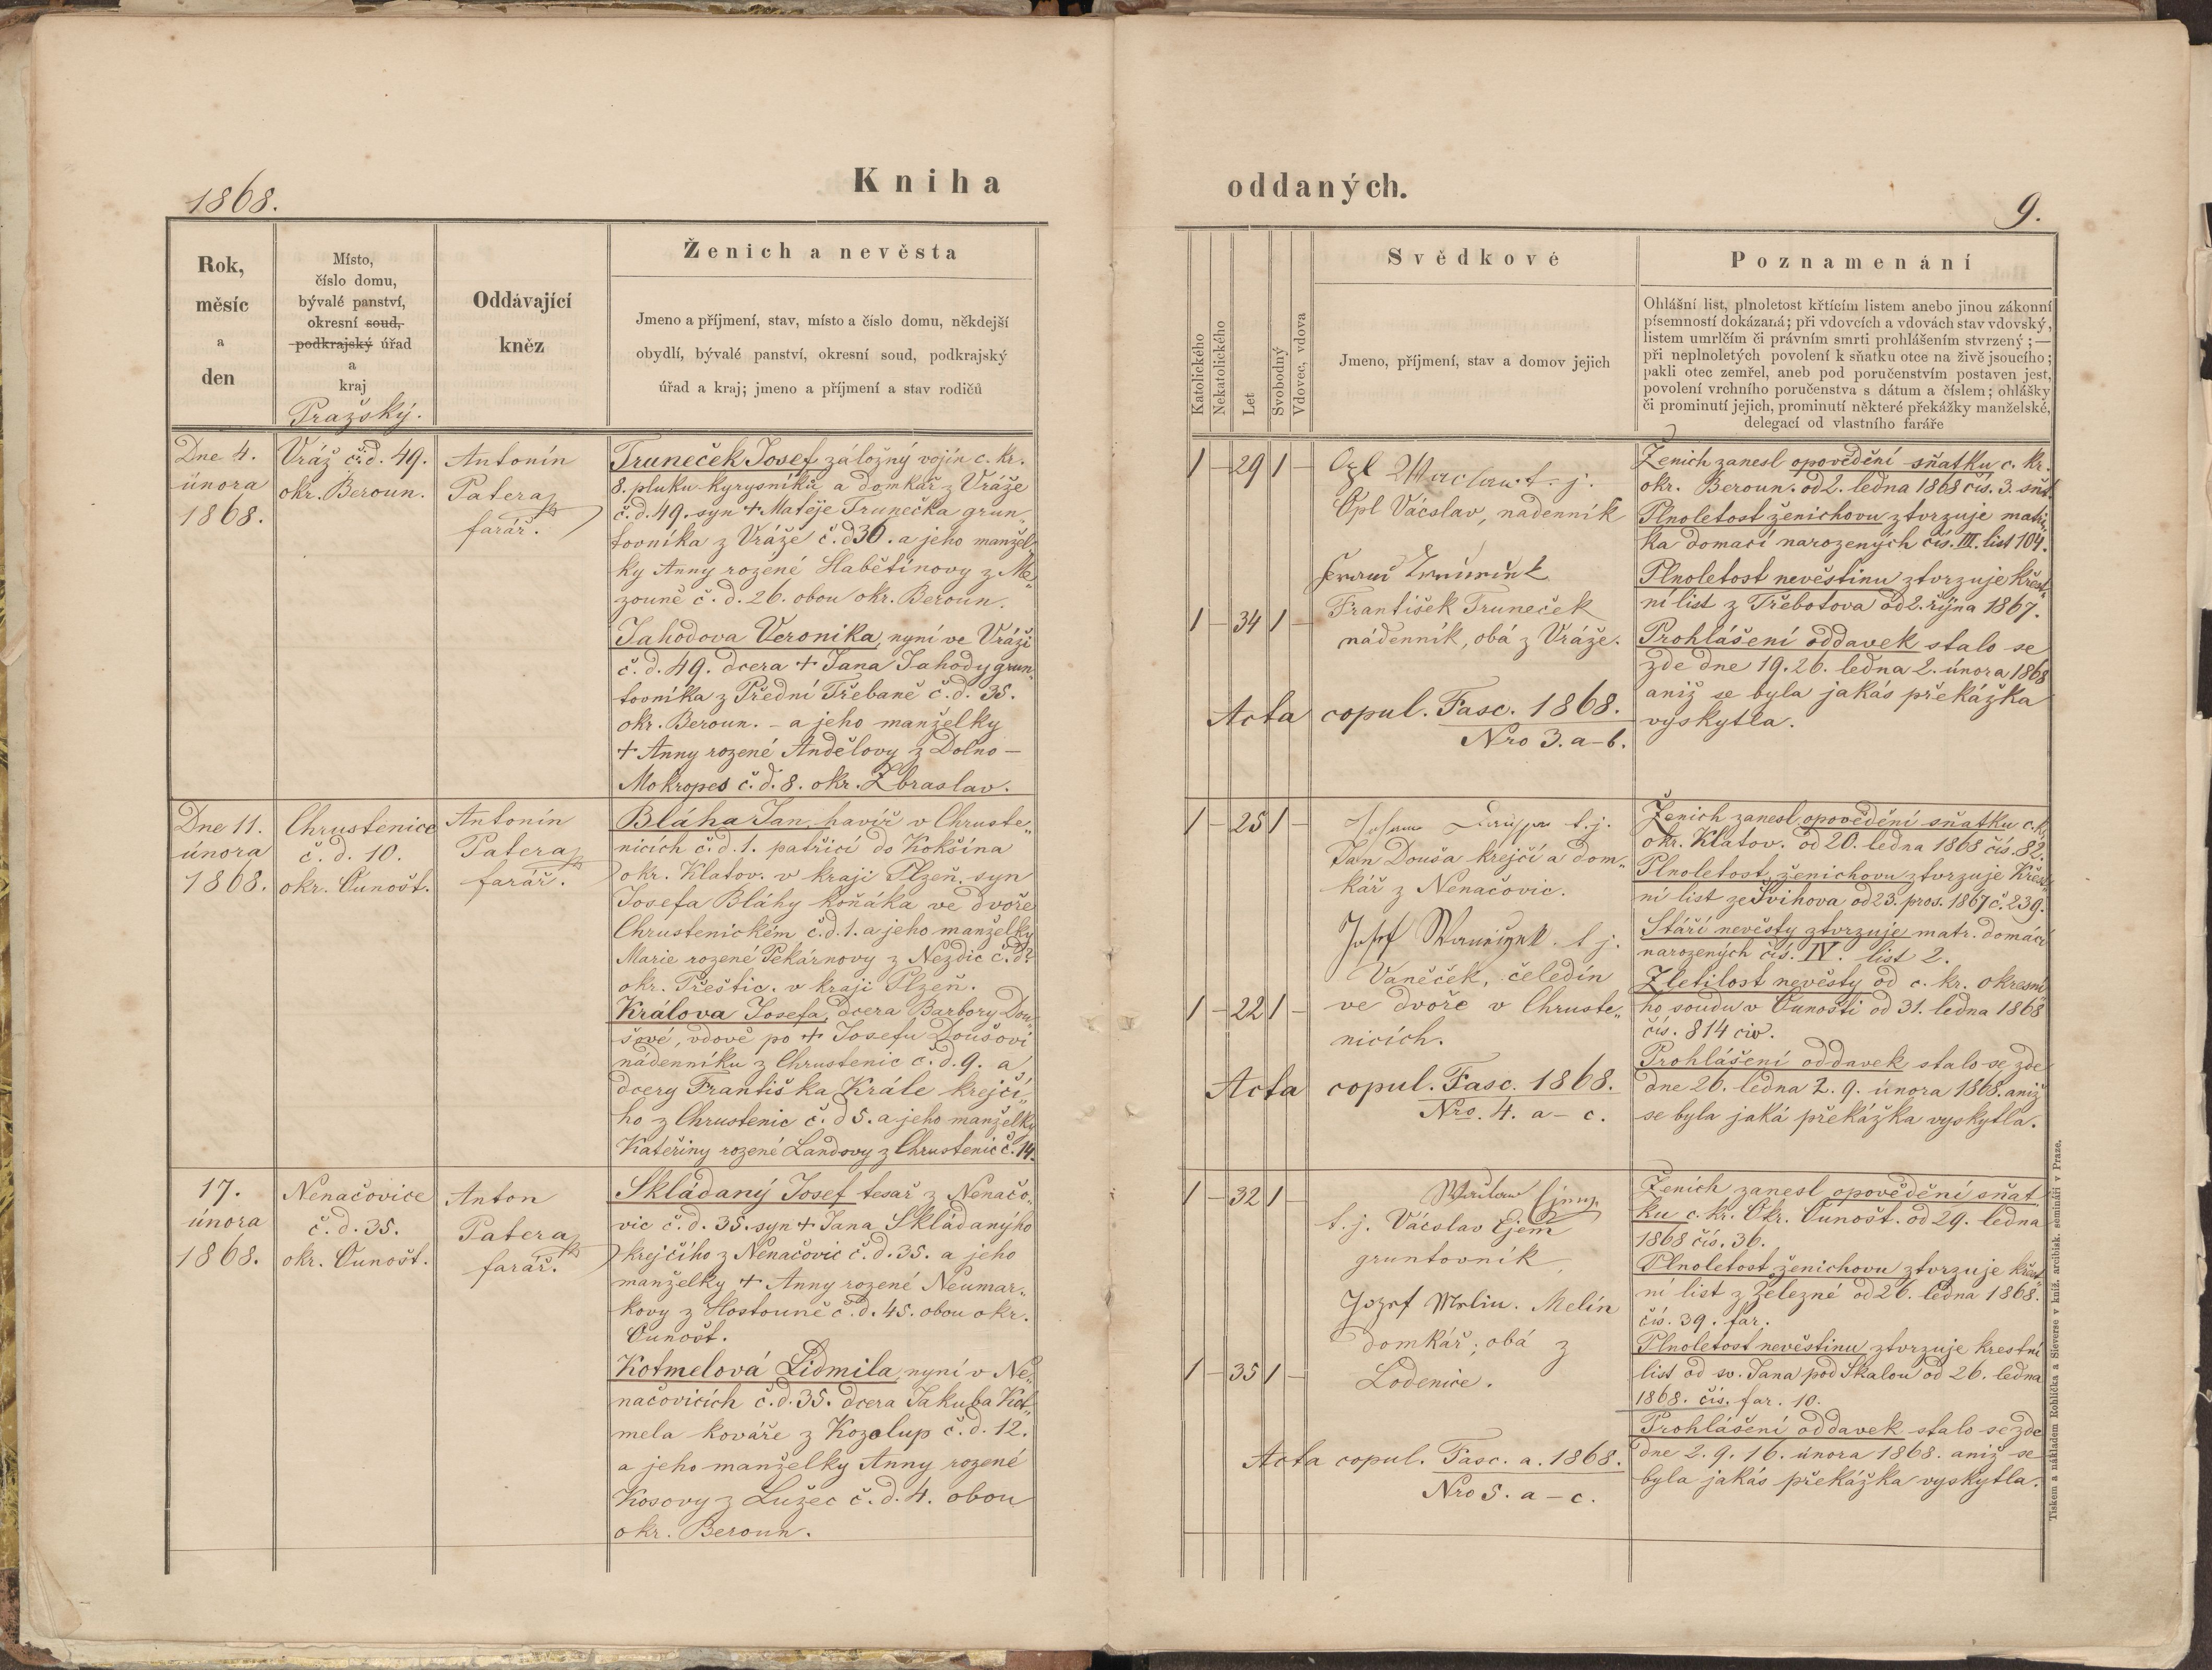 1868.
Kniha
Rok,
měsíc
a
den
Místo,
číslo domu,
bývalé panství,
okresní soud,
podkrajský úřad
a
kraj
Pražský.
Oddávající
kněz
Ženich a nevěsta
Jmeno a příjmení, stav, místo a číslo domu, někdejší
obydlí, bývalé panství, okresní soud, podkrajský
úřad a kraj; jmeno a příjmení a stav rodičů
Dne 4.
února
1868.
Vráž č.d. 49.
okr. Beroun.
Antonín
Patera
farář.
Truneček Josef, záložný vojín c. kr.
8. pluku kyrysníků, a domkář z Vráže
č.d. 49. syn + Matěje Trunečka grun„
tovníka z Vráže č.d 36. a jeho manžel„
ky Anny rozené Habětínovy z Me„
zouně č.d. 26. obou okr. Beroun.
Jahodova Veronika, nyní ve Vráži
č.d. 49. dcera + Jana Jahody grun„
tovníka z Přední Třebaně č.d. 35.
okr. Beroun. – a jeho manželky
+ Anny rozené Andělovy z Dolno –
Mokropes č.d. 8. okr. Zbraslav.
Dne 11.
února
1868.
Chrustenice
č.d. 10.
okr. Ounošt.
Antonín
Patera
farář.
Bláha Jan, havíř v Chruste„
nicích č.d. 1. patřící do Kokšína
okr. Klatov. v kraji Plzeň. syn
Josefa Bláhy koňáka ve dvoře
Chrustenickém č.d. 1. a jeho manželky
Marie rozené Pekárnovy z Nezdic č.d?
okr. Přeštic. v kraji Plzeň.
Králova Josefa, dcera Barbory Dou„
šové, vdově po + Josefu Doušovi
nádenníku z Chrustenic č.d. 9. a
dcery Františka Krále krejčí„
ho z Chrustenic č.d 5. a jeho manželky
Kateřiny rozené Landovy z Chrustenic č. 14.
17.
února
1868.
Nenačovice
č.d. 35.
okr. Ounošt.
Anton
Patera
farář.
Skládaný Josef tesař z Nenačo„
vic č.d. 35. syn + Jana Skládanýho
krejčího z Nenačovic č.d. 35. a jeho
manželky + Anny rozené Neumar„
kovy z Hostouně č.d. 45. obou okr.
Ounošt.
Kotmelová Lidmila, nyní v Ne„
načovicích č.d. 35. dcera Jakuba Kot„
mela kováře z Kozolup č.d. 12.
a jeho manželky Anny rozené
Kosovy z Lužec č.d. 4. obou
okr. Beroun.
oddaných.
9.
Katolického
Nekatolického
Let
Svobodný
Vdovec, vdova
Svědkové
Jmeno, příjmení, stav a domov jejich
Poznamenání
Ohlášní list, plnoletost křticím listem anebo jinou zákonní
písemností dokázaná; při vdovcích a vdovách stav vdovský,
listem umrlčím či právním smrti prohlášením stvrzený; —
při neplnoletých povolení k sňatku otce na živě jsoucího;
pakli otec zemřel, aneb pod poručenstvím postaven jest,
povolení vrchního poručenstva s dátum a číslem; ohlášky
či prominutí jejich, prominutí některé překážky manželské,
delegací od vlastního faráře
1 – 29 1 –
t. j.
Opl Václav, nadenník
1 – 34 1 –
František Truneček
nádenník, obá z Vráže.
Acta copul. Fasc. 1868.
Nro 3. a–b.
Ženich zanesl opovědění sňatku c. kr.
okr. Beroun. od 2. ledna 1868 čís. 3. sňt.
Plnoletost ženichovu ztvrzuje matri„
ka domací narozených čís. III. list 104.
Plnoletost nevěstinu ztvrzuje křest„
ní list z Třebotova od 2. října 1867.
Prohlášení oddavek stalo se
zde dne 19. 26. ledna 2. února 1868
aniž se byla jakás překážka
vyskytla.
1 – 25 1 –
t. j.
Jan Douša krejčí a dom„
kář z Nenačovic.
Josef t. j.
Vaněček, čeledín
1 – 22 1 –
ve dvoře v Chruste„
nicích.
Acta copul. Fasc. 1868.
Nro. 4. a – c.
Ženich zanesl opovědění sňatku c.k.
okr. Klatov. od 20. ledna 1868 čís. 82.
Plnoletost ženichovu ztvrzuje křest„
ní list ze Švihova od 23. pros. 1867 č. 239.
Stáří nevěsty ztvrzuje matr. domácí
narozených čís. IV. list 2.
Zletilost nevěsty od c. kr. okresní„
ho soudu v Ounošti od 31. ledna 1868
čís. 814 civ.
Prohlášení oddavek stalo se zde
dne 26. ledna 2. 9. února 1868. aniž
se byla jaká překážka vyskytla.
1 – 32 1 –
t. j. Václav Ejem
gruntovník
Jozef Melin. Melín
domkář; obá z
1 – 35 1 –
Lodenice.
Acta copul. Fasc. a. 1868.
Nro 5. a – c.
Ženich zanesl opovědění sňat
ku c. kr. Okr. Ounošt. od 29. ledna
1868 čís. 36.
Plnoletost ženichovu ztvrzuje křest„
ní list z Železné od 26. ledna 1868.
čís. 39. far.
Plnoletost nevěstinu ztvrzuje krestní
list od sv. Jana pod Skalou od 26. ledna
1868. čís. far. 10.
Prohlášení oddavek stalo se zde
dne 2. 9. 16. února 1868. aniž se
byla jakás překážka vyskytla.
Tiskem a nákladem Rohlíčka a Sieverse v kníž. arcibisk. semináři v Praze.